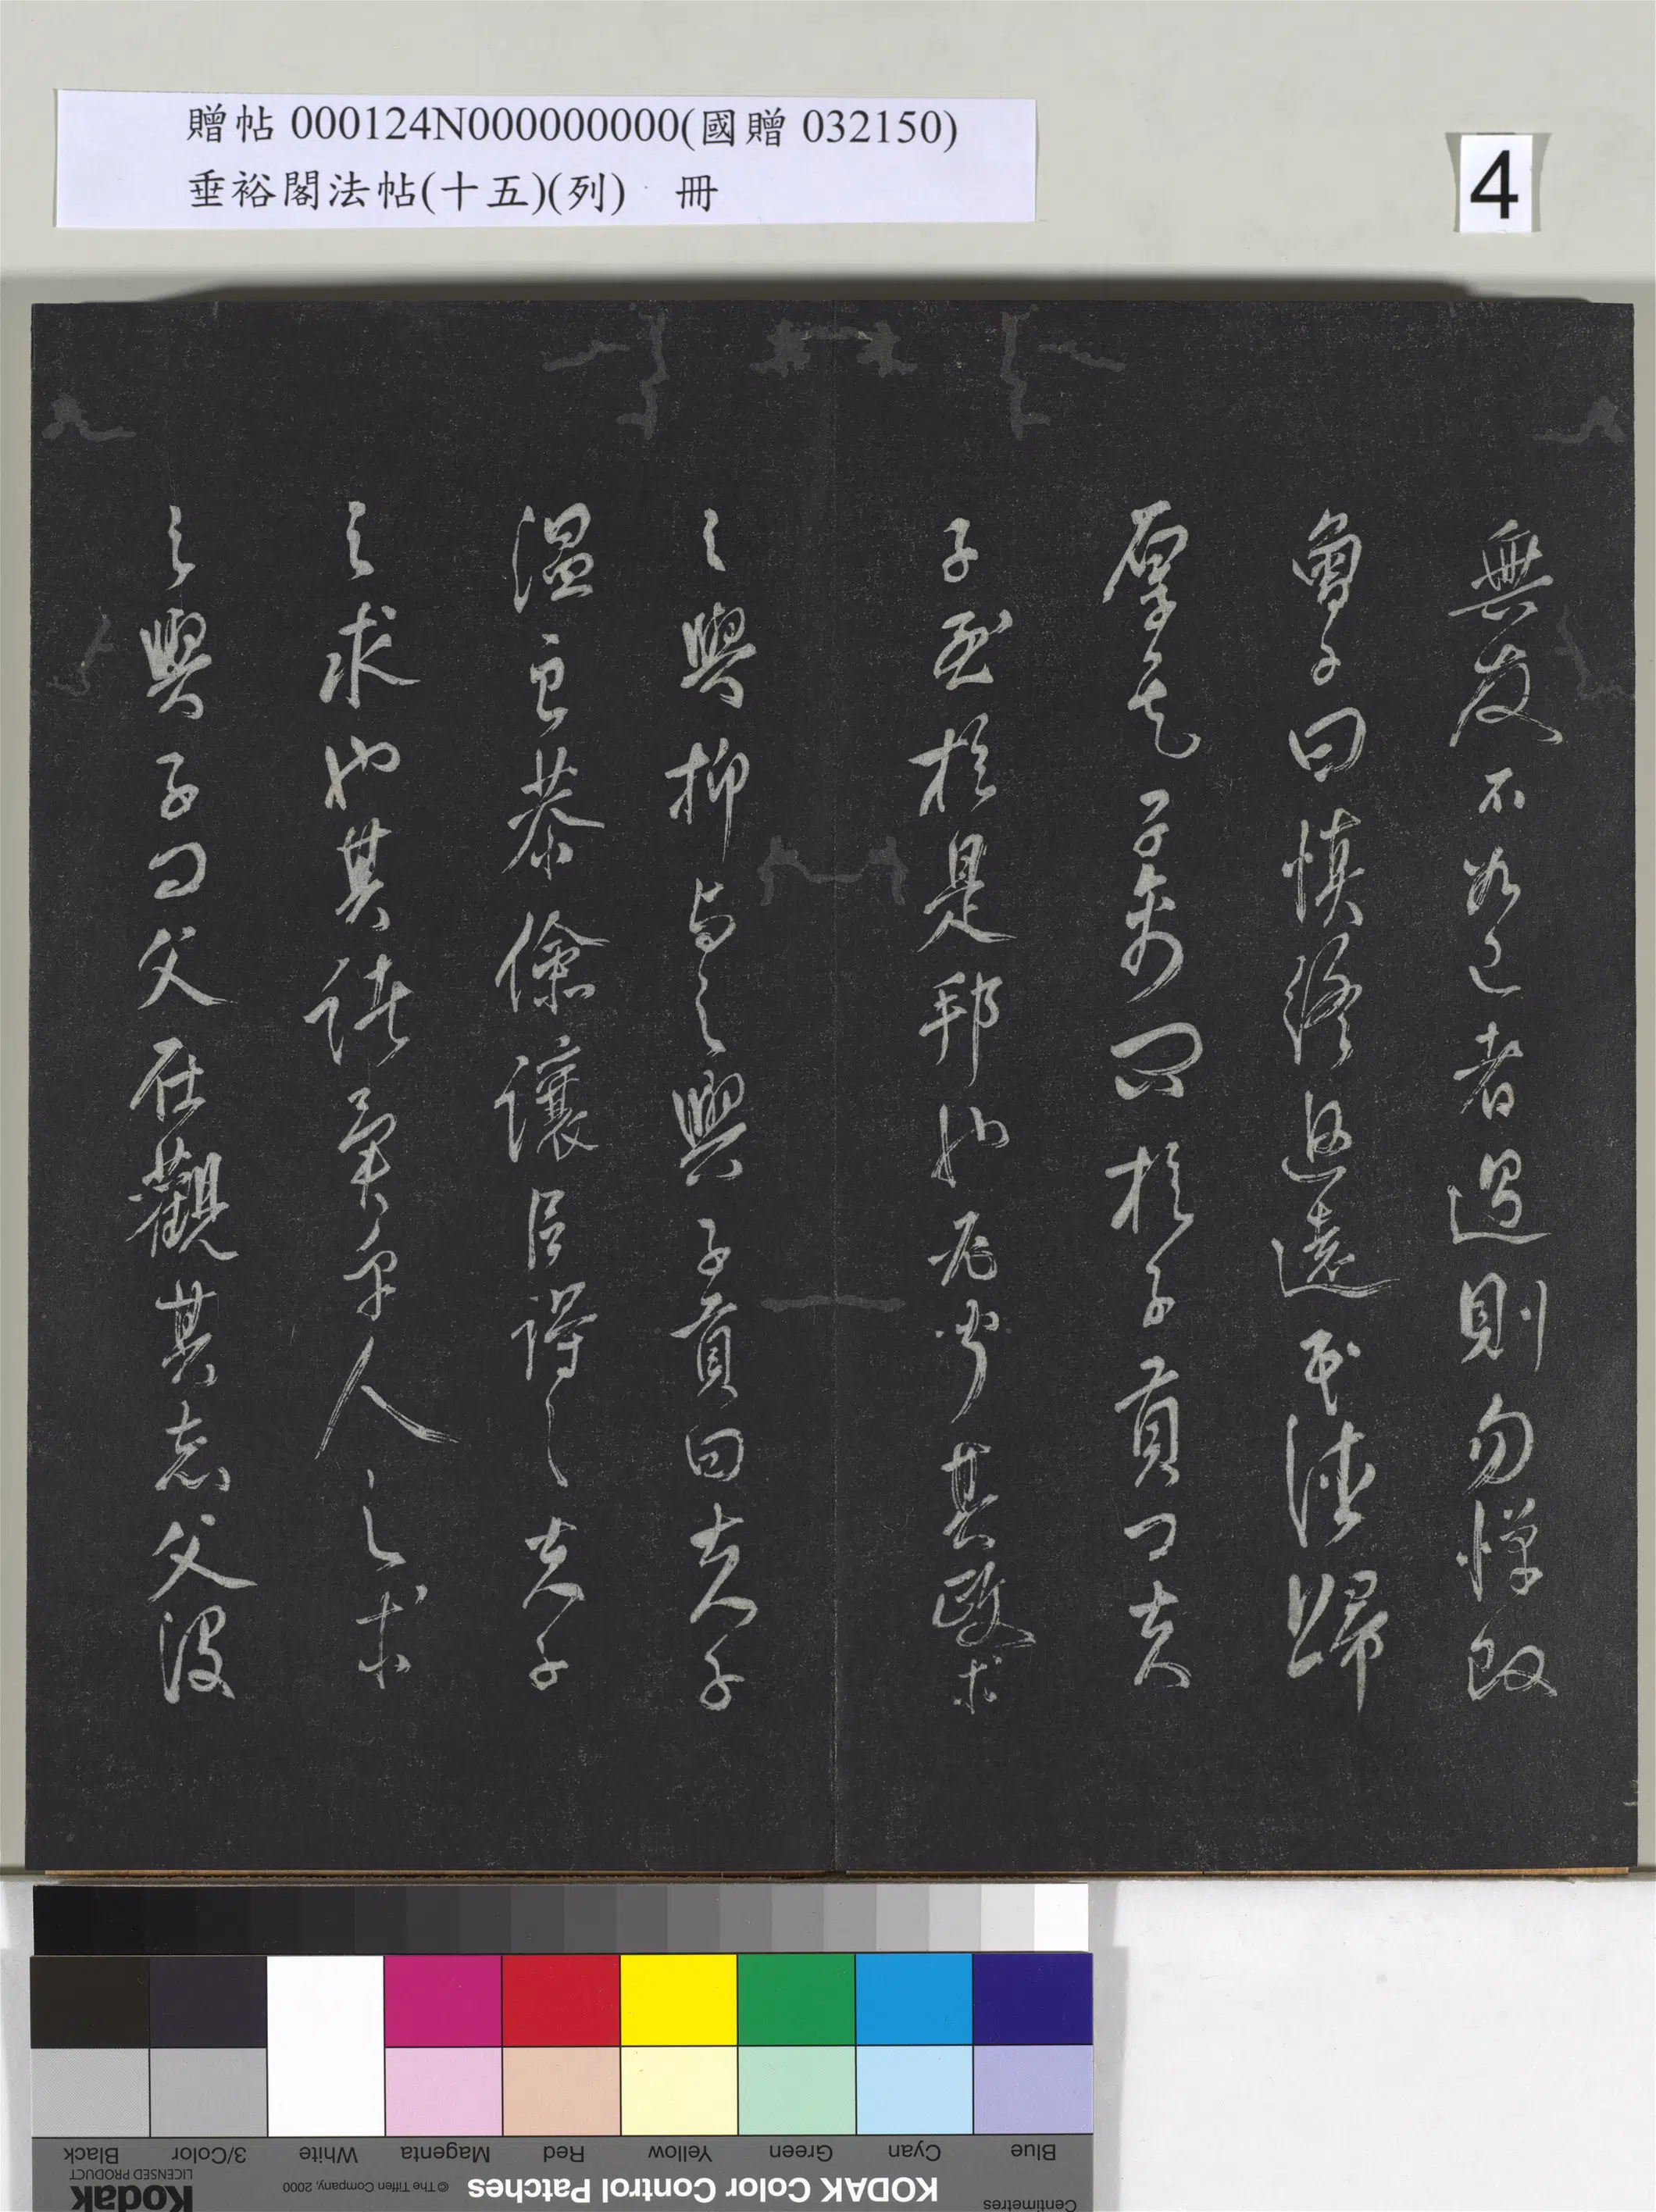 贈帖 000124N000000000(國贈 032150)
垂裕閣法帖(十五)(列) 冊
4
無友不如己者過則勿憚改
曾子曰慎終追遠民德歸
厚矣子禽問於子貢曰夫
子至於是邦也必聞其政求
之與抑與之與子貢曰夫子
溫良恭儉讓以得之夫子
之求也其諸異乎人之求
之與子曰父在觀其志父沒
Blue
Cyan
Green
Yellow
Red
Magenta
White
3/Color
Black
Centimetres
KODAK Color Control Patches
© The Tiffen Company, 2000
Kodak
LICENSED PRODUCT